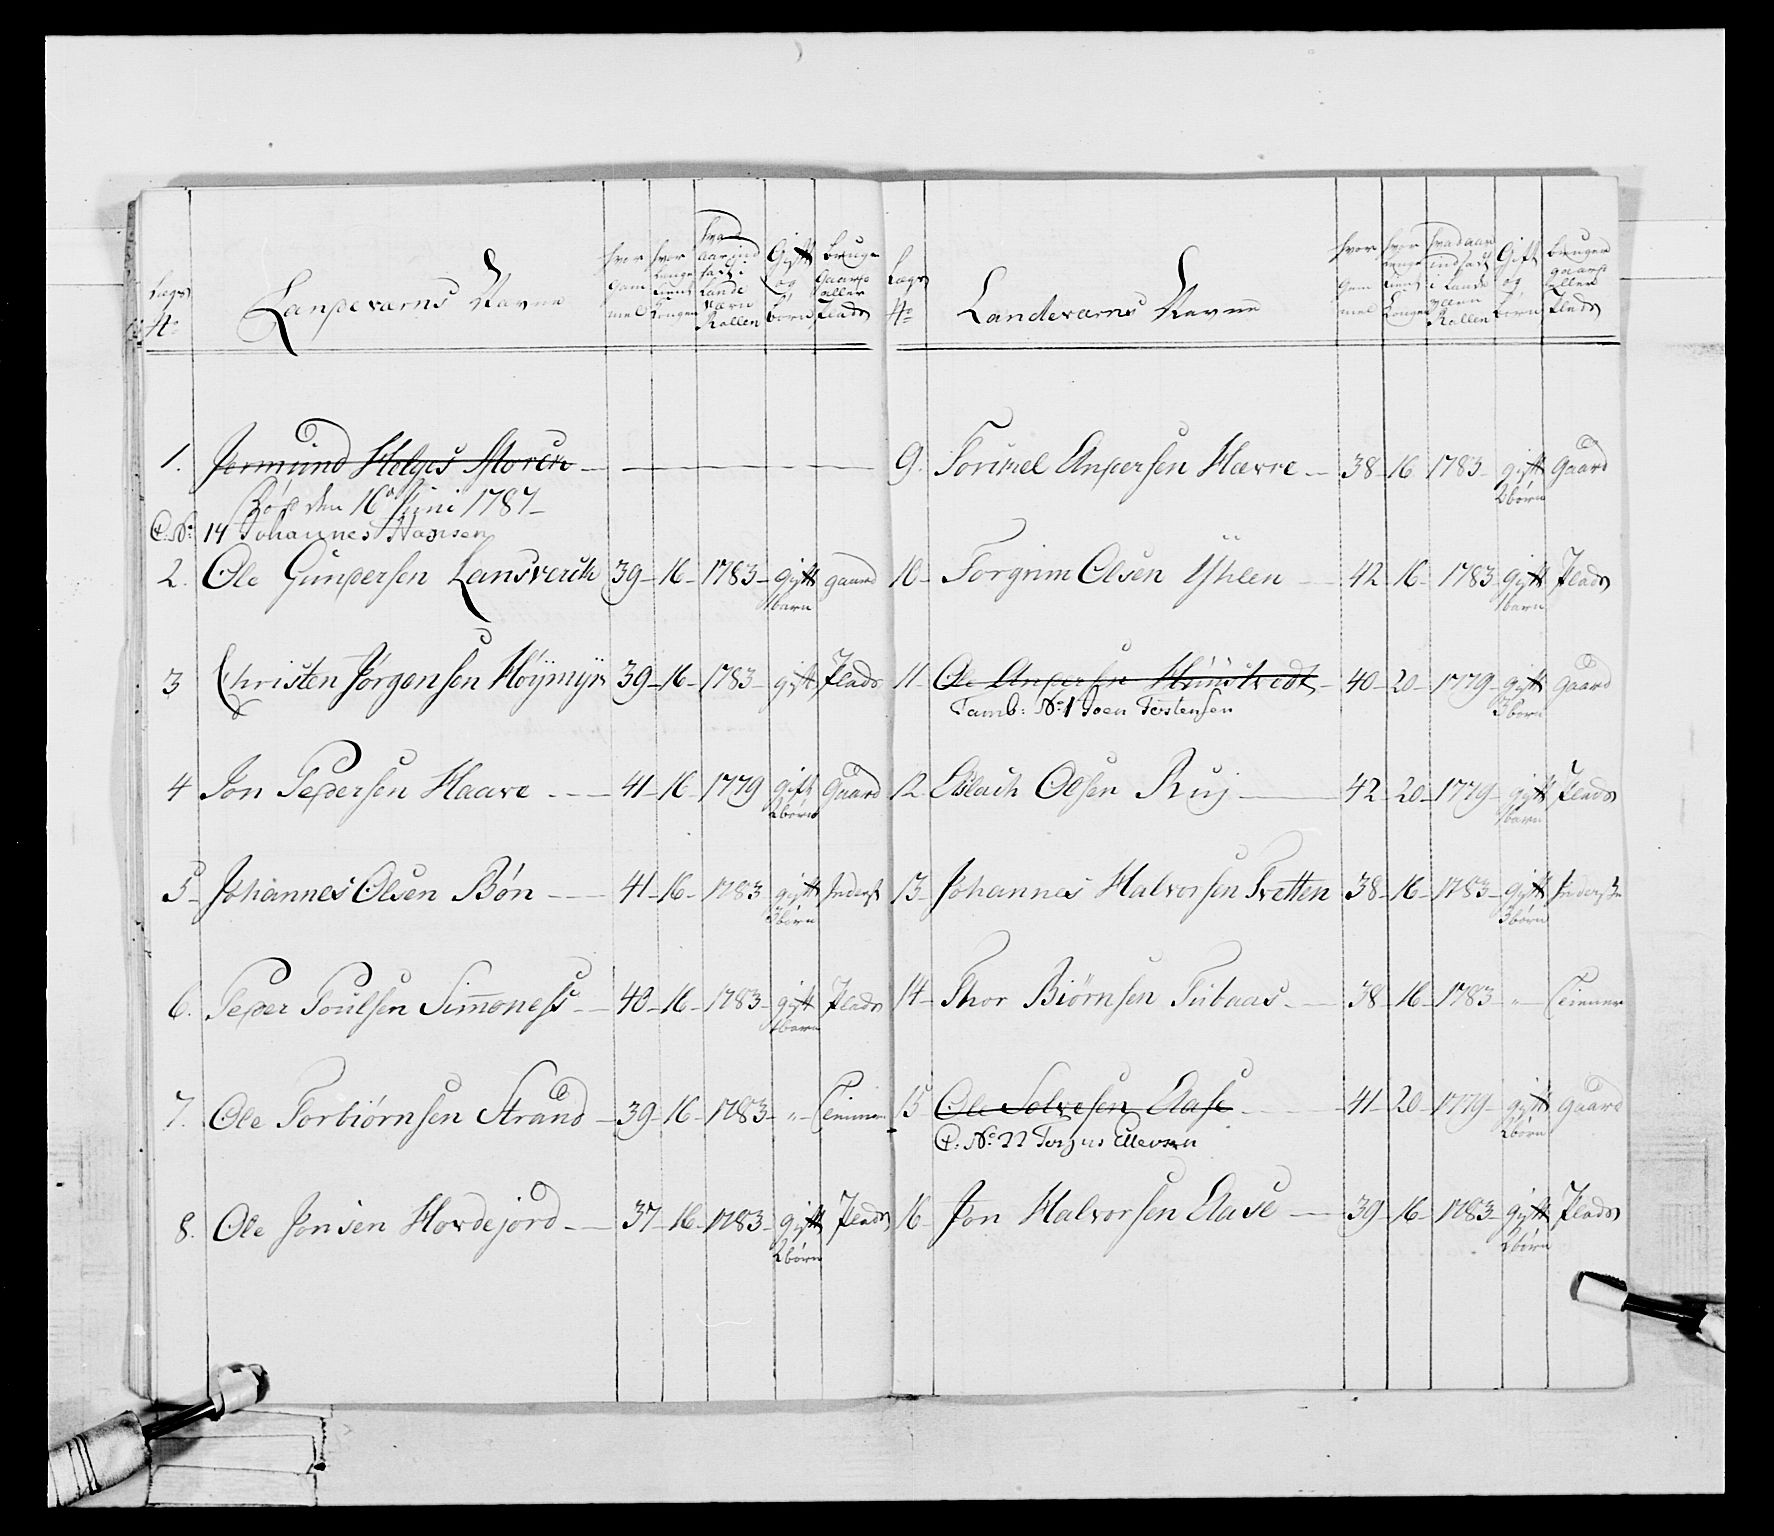 Lægs No
Landeværns Navne
hvor gammel
hvor længe tient Kongen
hvad aar indsadt i Lande værn Rollen
Gift og børn
bruger Gaard eller Plads
1. Jormund Holges Morch
Død den 16 Juni 1787
C: No: 14 Johannes Hansen
2. Ole Gundersen Landsverch 39 16 1783 gift gaard
1 barn
3 Christen Jørgensen Høijmÿr 39 16 1783 gift Plads
4 Jon Pedersen Haave 41 16 1779 gift Gaard
2 børn
5 Johannes Olsen Bøn 41 16 1783 gift Inderst
3 børn
6. Peder Poulsen Simones 40 16 1783 gift Plads
1 barn
7. Ole Torbiørnsen Strand 39 16 1783 " tienner
8. Ole Jonsen Hovdejord 37 16 1783 gift Plads
2 børn
Lægs No
Landeværns Navne
hvor gammel
hvor længe tient Kongen
hvad aar indsadt i Lande værn Rollen
Gift og børn
bruger gaard eller Plads
9. Tormel Andersen Hævre 38 16 1783 gift Gaard
2 børn
10 Torgrim Olsen Yhlen 42 16 1783 gift Plads
1 barn
11 Ole Andersen Hundtvedt 40 20 1779 gift gaard
3 børn
Tamb: No: 1 Joen Tostensen
12 Eslach Olsen Ruj 42 20 1779 gift Plads
1 barn
13 Johannes Halvorsen Tvetten 38 16 1783 gift Inderste
3 børn
14 Thor Biørnsen Tubaas 38 16 1783 " tienner
15 Ole Solvesen Aase 41 20 1779 gift gaard
2 børn
C: No: 22 Torjus Ellevsen
16 Jon Halvorsen Aase 39 16 1783 gift Plads
2 børn